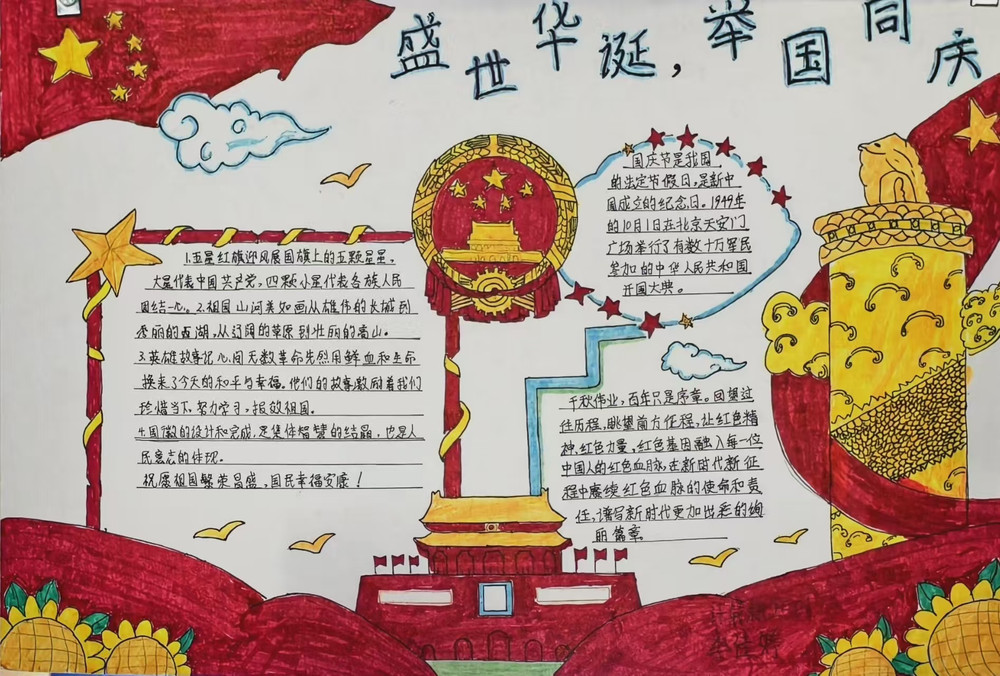 盛世华诞，举国同庆
1.五星红旗迎风展国旗上的五颗星星。
大星代表中国共产党，四颗小星代表各族人民
团结一心。2.祖国山河美如画从雄伟的长城到
秀丽的西湖，从辽阔的草原到壮丽的高山。
3.英雄故事记心间无数革命先烈用鲜血和生命
换来了今天的和平与幸福。他们的故事激励着我们
珍惜当下，努力学习，报效祖国。
4.国徽的设计和完成，是集体智慧的结晶，也是人
民意志的体现。
祝愿祖国繁荣昌盛，国民幸福安康！
国庆节是我国
的法定节假日，是新中
国成立的纪念日。1949年
的10月1日在北京天安门
广场举行了有数十万军民
参加的中华人民共和国
开国大典。
千秋伟业，百年只是序章。回望过
往历程，眺望前方征程，让红色精
神、红色力量，红色基因融入每一位
中国人的红色血脉，去新时代新征
程中赓续红色血脉的使命和责
任，谱写新时代更加出彩的绚
丽篇章。